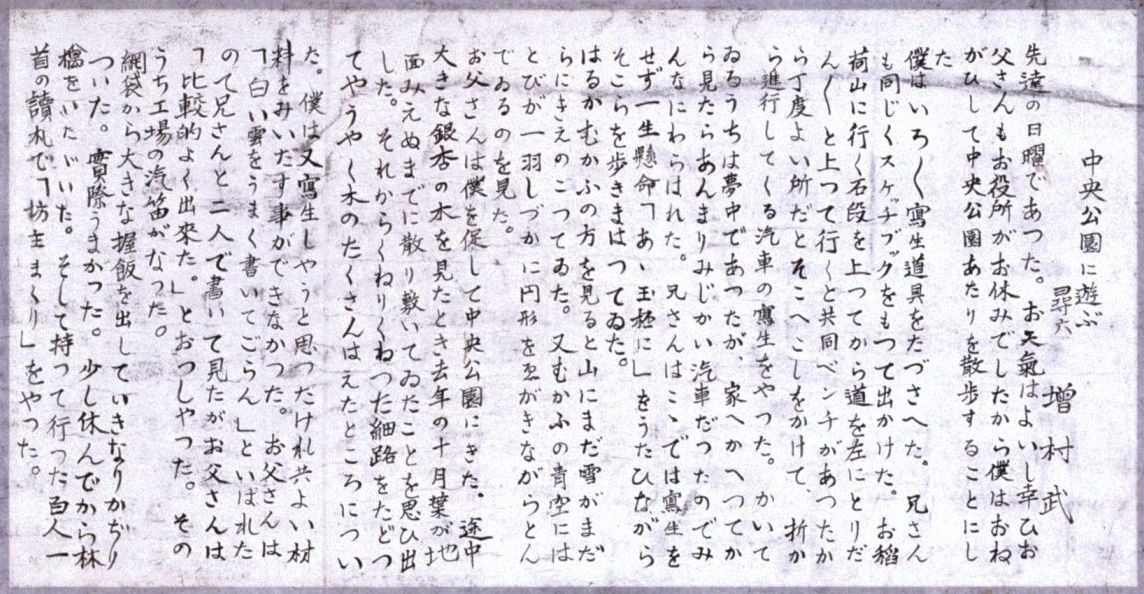 中央公園に遊ぶ
尋六 増村武
先達の日曜であつた。お天氣はよいし幸ひお
父さんもお役所がお休みでしたから僕はおね
がひして中央公園あたりを散歩することにし
た
僕はいろ〳〵寫生道具をたづさへた。兄さん
も同じくスケッチブックをもつて出かけた。お稻
荷山に行く石段を上つてから道を左にとりだ
ん〳〵と上つて行くと共同ベンチがあつたか
ら丁度よい所だとそこへこしをかけて、折か
ら進行してくる汽車の寫生をやつた。かいて
ゐるうちは夢中であつたが、家へかへつてか
ら見たらあんまりみじかい汽車だつたのでみ
んなにわらはれた。兄さんはこゝでは寫生を
せず一生懸命「あゝ玉杯に」をうたひながら
そこらを歩きまはつてゐた。
はるかむかふの方を見ると山にまだ雪がまだ
らにきえのこつてゐた。又むかふの青空には
とびが一羽しづかに円形をゑがきながらとん
でゐるのを見た。
お父さんは僕を促して中央公園にきた、途中
大きな銀杏の木を見たとき去年の十月葉が地
面みえぬまでに散り敷いてゐたことを思ひ出
した。それからくねりくねつた細路をたどつ
てやうやく木のたくさんはえたところについ
た。僕は又寫生しやうと思つたけれ共よい材
料をみいだす事ができなかつた。お父さんは
「白い雲をうまく書いてごらん」といはれた
ので兄さんと二人で書いて見たがお父さんは
「比較的よく出來た。」とおつしやつた。その
うち工場の汽笛がなつた。
網袋から大きな握飯を出していきなりかぢり
ついた。實際うまかつた。少し休んでから林
檎をいたゞいた。そして持つて行つた百人一
首の讀札で「坊主まくり」をやつた。